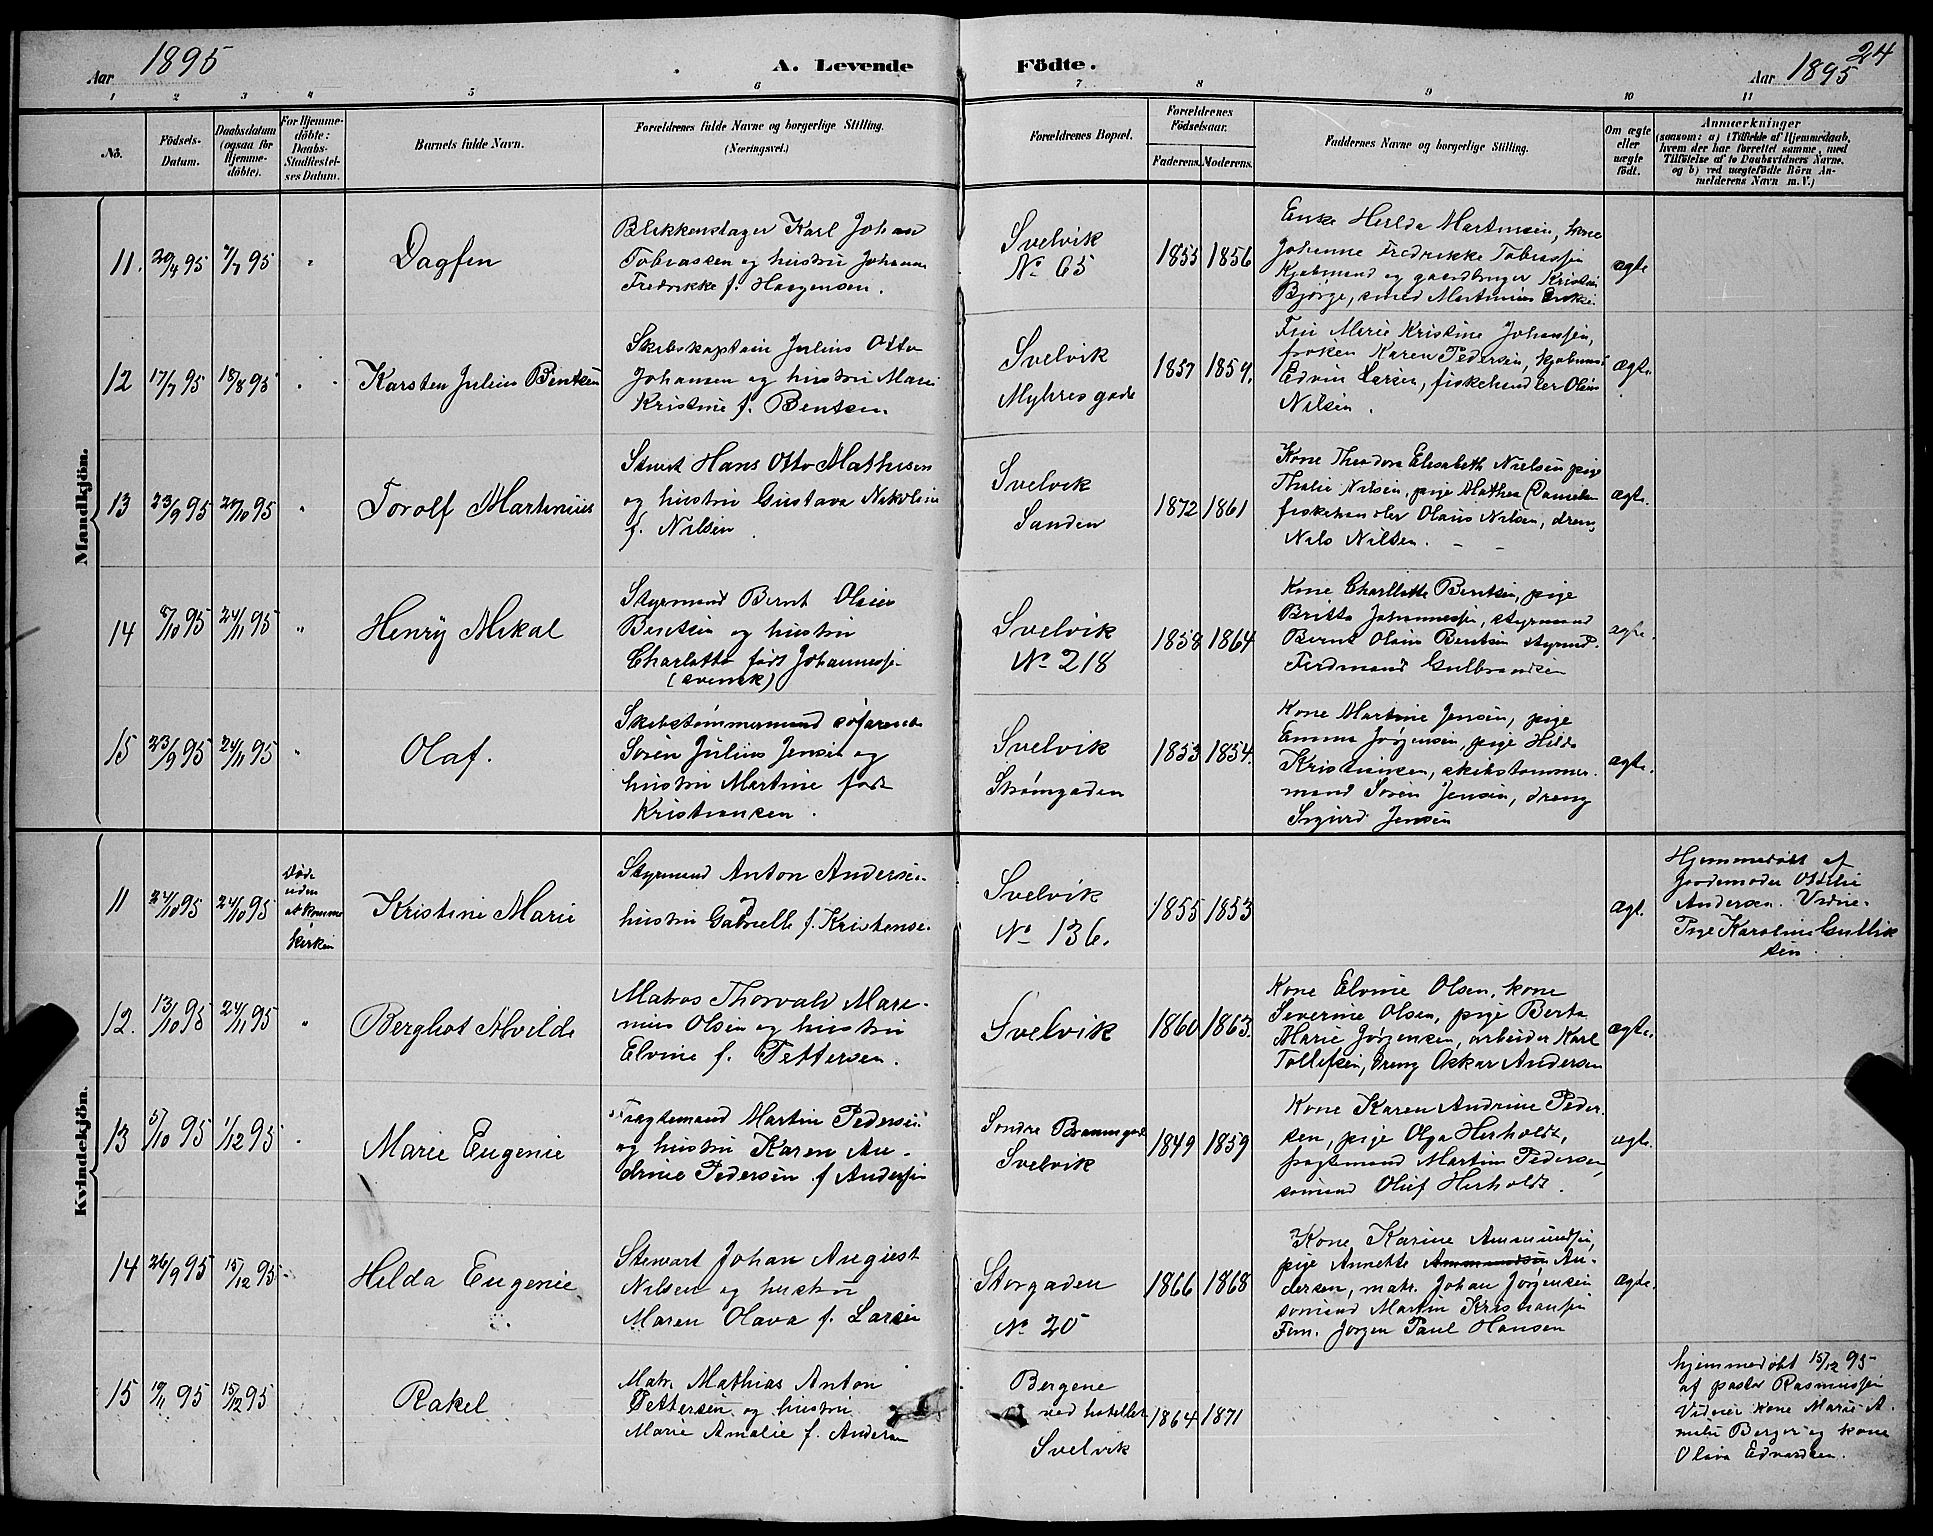 Aar 1895 A. Levende Födte. Aar 1895 24
1 2 3 4 5 6 7 8 9 10 11
Nô.
Födsels-Datum.
Daabsdatum (ogsaa for Hjemme-döbte).
For Hjemme-döbte: Daabs-Stadfæstel-ses Datum.
Barnets fulde Navn.
Forældrenes fulde Navne og borgerlige Stilling.
(Næringsvei.)
Forældrenes Bopæl.
Forældrenes Födselsaar.
Faderens. Moderens.
Faddernes Navne og borgerlige Stilling.
Om ægte eller uægte födt.
Anmærkninger
(saasom: a) i Tilfælde af Hjemmedaab,
hvem der har forrettet samme, med
Tilföielse af to Daabsvidners Navne.
og b) ved uægtefödte Börn An-
melderens Navn m. V.)
Mandkjön.
11. 20/4 95 7/7 95 "
Dagfin
Blikkenslager Karl Johan
Tobiassen og hustru Johanne
Fredrikke f. Haagensen.
Svelvik
No 65
1855 1856
Enke Hilda Martinsen, kone
Johanne Fredrikke Tobiassen
Kjøbmand og gaardbruger Kristian
Bjørge, smed Martinius
ægte
12 17/7 95 18/8 95 "
Karsten Julius Bentsen
Skibskaptein Julius Otto
Johansen og hustru Marie
Kristine f. Bentsen
Svelvik
Myhresgade
1857 1859.
Fru Marie Kristine Johansen,
frøken Karen Pedersen, kjøbmand
Edvin Larsen, fiskehandler Olaus
Nilsen.
ægte.
13 23/9 95 20/10 95 "
Torolf Martinius
Stuert Hans Otto Mathisen
og hustru Gustava Nikoline
f. Nilsen
Svelvik
Sanden
1872 1861
Kone Theodora Elisabeth Nielsen, pige
Thalie Nilsen, pige Mathea Danielsen
fiskehandler Olaus Nilsen, dreng
Nils Nilsen.
ægte.
14 8/10 95 24/11 95 "
Henry Mikal
Styrmand Bernt Olaus
Bentsen og hustru
Charlotte født Johannessen
(svensk)
Svelvik
No 218
1858 1864
Kone Charllotte Bentsen, pige
Britta Johannessen, styrmand
Bernt Olaus Bentsen styrmd.
Ferdinand Gulbrandsen
ægte.
15 23/9 95 24/11 95 "
Olaf.
Skibstømmermand søfarende
Søren Julius Jensen og
hustru Martine født
Kristiansen.
Svelvik
Strømgaden
1853 1854.
Kone Martine Jensen, pige
Emma Jørgensen, pige Hilda
Kristiansen, skibstømmer-
mand Søren Jensen, dreng
Sigurd Jensen
ægte.
Kvindekjön.
11 24/10 95 24/10 95
døde
uden
at komme
kirken
Kristine Marie
Styrmand Anton Andersen
hustru Gabrielle f. Kristense.
Svelvik
No 136.
1855 1853
ægt.
Hjemmedøbt af
jordemoder Ottilie
Andersen. Vidne.
Pige Karoline Gullik
sen.
12. 13/10 95 24/11 95 "
Berghot Alvilde
Matros Thorvald Mari-
nius Olsen og hustru
Elvine f. Pettersen.
Svelvik
1860 1863.
Kone Elvine Olsen, kone
Severine Olsen, pige Berta
Marie Jørgensen, arbeider Karl
Tollefsen, dreng Oskar Andersen
ægte.
13 5/10 95 1/12 95 "
Marie Eugenie
Fragtemand Martin Pedersen
og hustru Karen An-
drine Pedersen f Andersen
Søndre
Svelvik
1849 1859
Kone Karen Andrine Peder-
sen, pige Olga Herholdt,
fragtmand Martin Pedersen,
sømand Oluf Herholdt.
ægte.
14 26/9 95 15/12 95 -
Hilda Eugenie
Stewart Johan August
Nilsen og hustru
Maren Olava f. Larsen
Storgaden
No 20
1866 1868
Kone Karine Ammundsen,
pige Annette Ammundsen An-
dersen, matr. Johan Jørgensen
sømand Martin Kristiansen
Jørgen Paul Hansen
ægte.
15 19/11 95 15/12 95
Rakel
Matr. Mathias Anton
Pettersen og hustru
Marie Amalie f. Andersen
Bergene
ved hotellet
Svelvik
1864 1871
hjemmedøbt 15/12 95
af pastor Rasmussen
Vidner kone Marie A-
malie Berger og kone
Olava Edvardsen.